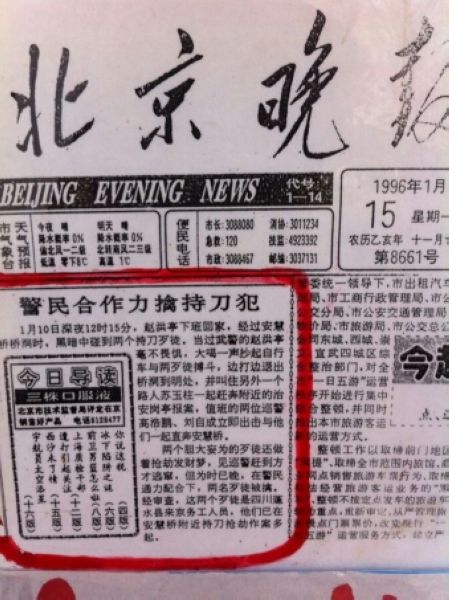 北京晚报
BEIJING EVENING NEWS
代号
1—14
1996年1月
15 星期一
农历乙亥年 十一月
第8661号
市气象台
天气预报
今夜 晴
降水概率 0%
偏北风一二级
低温 零下8℃
明天 晴
降水概率 0%
北转南风二三级
高温 1℃
便民电话
市长: 3088080
急救: 120
市政: 3088467
消协: 3011234
技监: 4923392
邮编: 3037131
警民合作力擒持刀犯
1月10日深夜12时15分，赵洪亭下班回家，经过安慧
桥桥洞时，黑暗中碰到两个持刀歹徒，当过武警的赵洪亭
毫不畏惧，大喝一声抄起自行
车与两歹徒搏斗，边打边退出
桥洞到明处，并叫住另外一个
路人苏玉柱一起赶奔附近的治
安岗亭报案。值班的两位巡警
高浩鹏、刘自成立即出击与他
们一起直奔安慧桥。
两个胆大妄为的歹徒还做
着抢劫发财梦。见巡警赶到方
才逃窜，但为时已晚，在警民
通力配合下，两名歹徒被擒。
经审查，这两个歹徒是四川蓬
水县来京务工人员，他们已在
安慧桥附近持刀抢劫作案多
起。
今日导读
三株口服液
北京市技术监督局评定在京
销售好产品
你说这税 (四版)
前卫男篮怎么啦 (八版)
上海质检干部 (六版)
遭打引起关注 (十二版)
西汗水丁情 (十五版)
宇航员太空逃生 (十六版)
委统一领导下，市出租汽车
局、市工商行政管理局、市
公交分局、市公安交通管理局
价局、市旅游局、市公交总公
公司东城、西城、崇
、宣武四城区综合
整治部门，对全
市“一日五游”运营
秩序开始进行集中
综合整顿，并同时
推出本市旅游客运
新的运营方式。
整体工作以取缔前门地区
取缔全市范围内旅馆、
网点销售旅游车票行为，取缔
法经营旅游客运业务的“
整顿不按定点发车的旅游车
重点，重新审定，从严管理旅
景点门票票价，改变现行“一
五游”运营服务方式，建立严
今